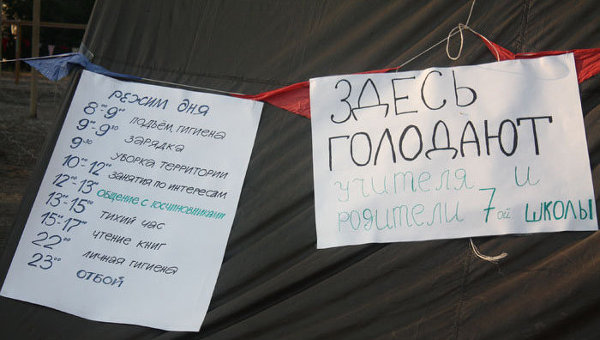 РЕЖИМ ДНЯ
8⁰⁰-9⁰⁰ ПОДЪЁМ, ГИГИЕНА
9⁰⁰-9³⁰ ЗАРЯДКА
9³⁰ УБОРКА ТЕРРИТОРИИ
10⁰⁰-12⁰⁰ ЗАНЯТИЯ ПО ИНТЕРЕСАМ
12⁰⁰-13⁰⁰ ОБЩЕНИЕ С ГОСЧИНОВНИКАМИ
13⁰⁰-15⁰⁰ ТИХИЙ ЧАС
15⁰⁰-17⁰⁰ ЧТЕНИЕ КНИГ
22⁰⁰ ЛИЧНАЯ ГИГИЕНА
23⁰⁰ ОТБОЙ
ЗДЕСЬ
ГОЛОДАЮТ
учителя и
родители 7ой школы